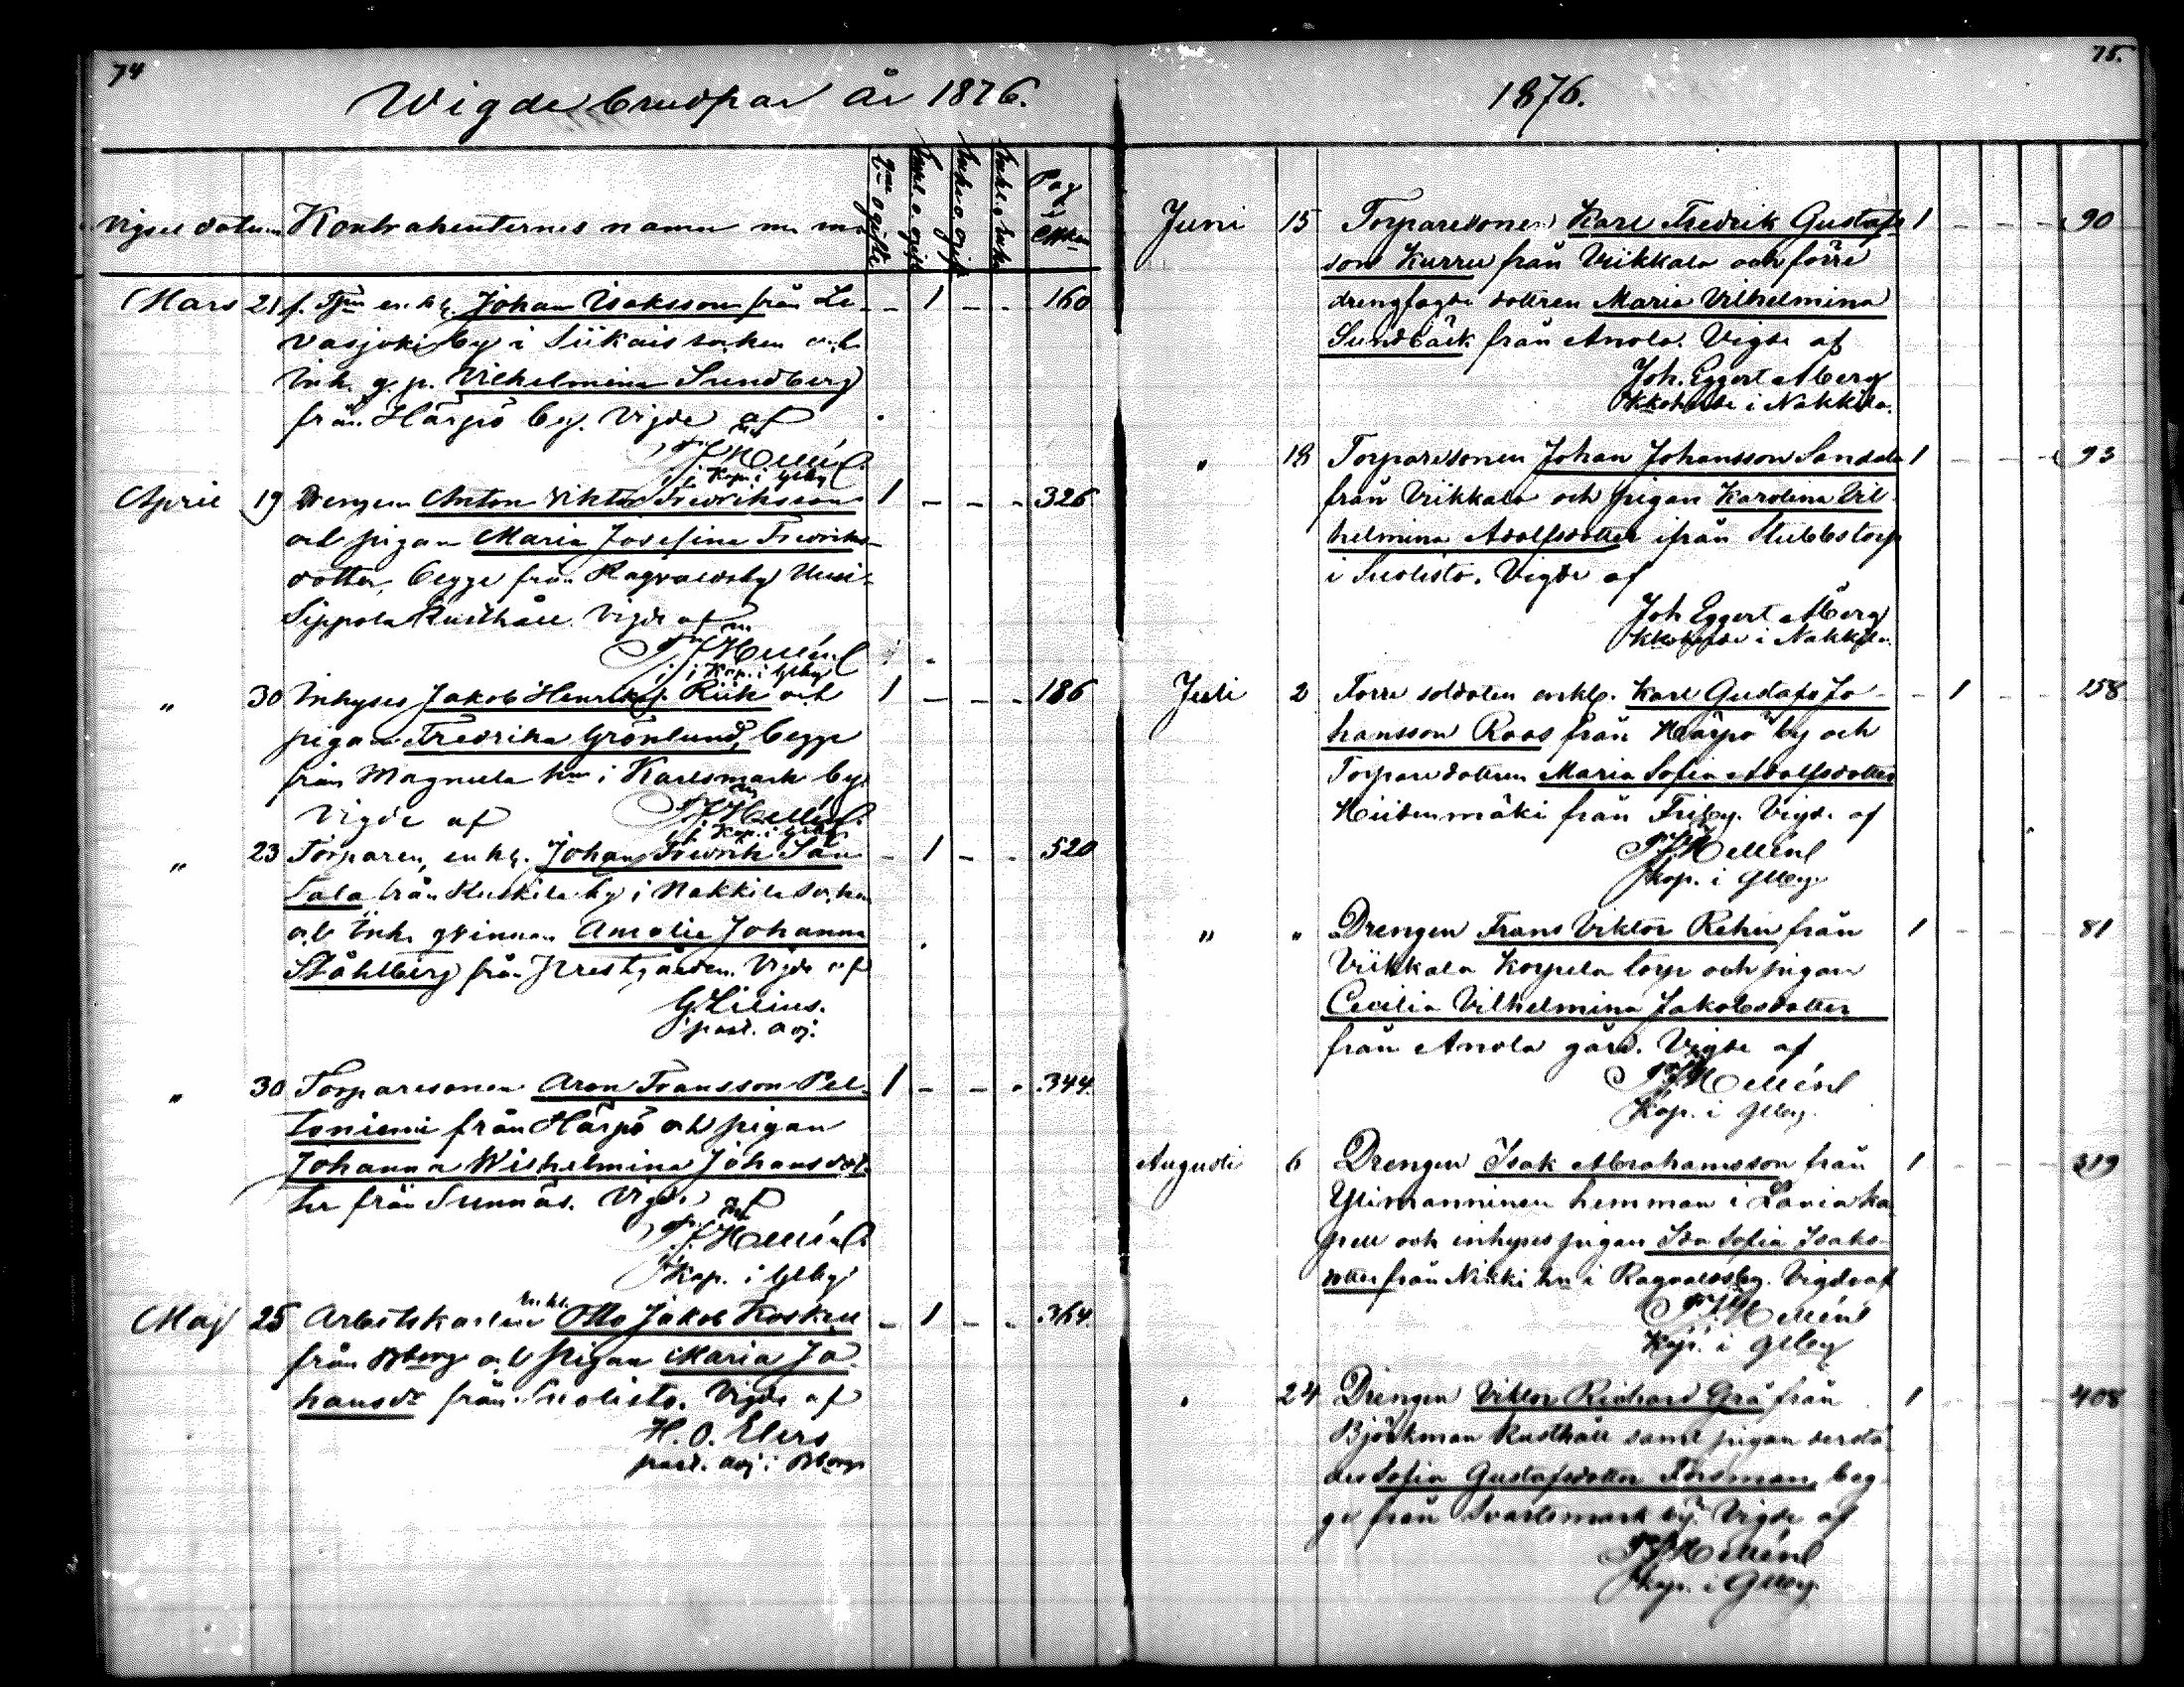 74
Wigde brudpar År 1876.
Vigsel datum Kontrahenternes namn m. m.
Mars 21 f. Tjm enkl. Johan Isaksson från Le- - 1 - - 160
vasjoki by i Siikais socken och
Inh. q. p. Vilhelmina Sundberg
från Härpö by. Vigde af
Hellén
Kap. i Ulfby
April 19 Drengen Anton Viktor Fredriksson 1 - - - 326
och pigan Maria Josefina Fredriks-
dotter, begge från Ragvaldsby Uusi-
Sippola Rusthåll. Vigde af
Hellén
Kap. i Ulfby
" 30 Inhyses Jakob Henriksf. Riik och 1 - - - 186
pigan Fredrika Grönlund, begge
från Magnula hmn i Karlsmark by.
Vigde af
Hellén
Kap. i Ulfby
" 23 Torparen, enkl. Johan Fredrik San - 1 - - 520
Sala från Ruskila by i Nakkila socken
och Inh. qvinnan Amalia Johanna
Ståhlberg från Prestgården. Vigde af
G. Lilius.
past. adj.
" 30 Torparesonen Aron Fransson Pel- 1 - - - 344.
toniemi från Härpö och pigan
Johanna Wilhelmina Johansdot-
ter från Sunnäs. Vigde af
Hellén
Kap. i Ulfby
Maj 25 Arbetskarlen enkl. Otto Jakob Koskee - 1 - - 364
från Bborg och pigan Maria Jo-
hansdr från Suolisto. Vigde af
H. O. Elers
past. adj. i Bborg
75.
1876.
Juni 15 Torparesonen Karl Fredrik Gustafs- 1 - - - 90
son Kurru från Viikkala och förre
drengfogde dottren Maria Vilhelmina
Sundbäck från Anola. Vigde af
Joh. Eggert Åberg
Kkoherde i Nakkila.
" 18 Torparesonen Johan Johansson Sandela 1 - - - 93
från Viikkala och pigan Karolina Vil-
helmina Adolfsdotter ifrån Stubbstorp
i Suolisto. Vigde af
Joh Eggert Åberg
Kkoherde i Nakkila.
Juli 2 Förre soldaten enkl. Karl Gustaf Jo- - 1 - - 158
hansson Roos från Härpö by och
Torpare dottren Maria Sofia Adolfsdotter
Hiidenmäki från Friby. Vigde af
Hellén
Kap. i Ulfby.
" " Drengen Frans Viktor Rehn från 1 - - - 81
Viikkala Korpela torp och pigan
Cecilia Vilhelmina Jakobsdotter
från Anola gård. Vigde af
Hellén
Kap. i Ulfby.
Augusti 6 Drengen Isak Abrahamsson från 1 - - - 319
Ylimanninen hemman i Lavia ka-
pell och inhyses pigan Ida Sofia Isaks-
dotter från Nikki hn i Ragvaldsby. Vigde af
Hellén
Kap. i Ulfby
" 24 Drengen Viktor Richard Grå från 1 - - - 408
Björkman Rusthåll samt pigan derstä-
des Sofia Gustafsdotter Forsman, beg-
ge från Svartsmark by. Vigde af
Hellén
Kap. i Ulfby.